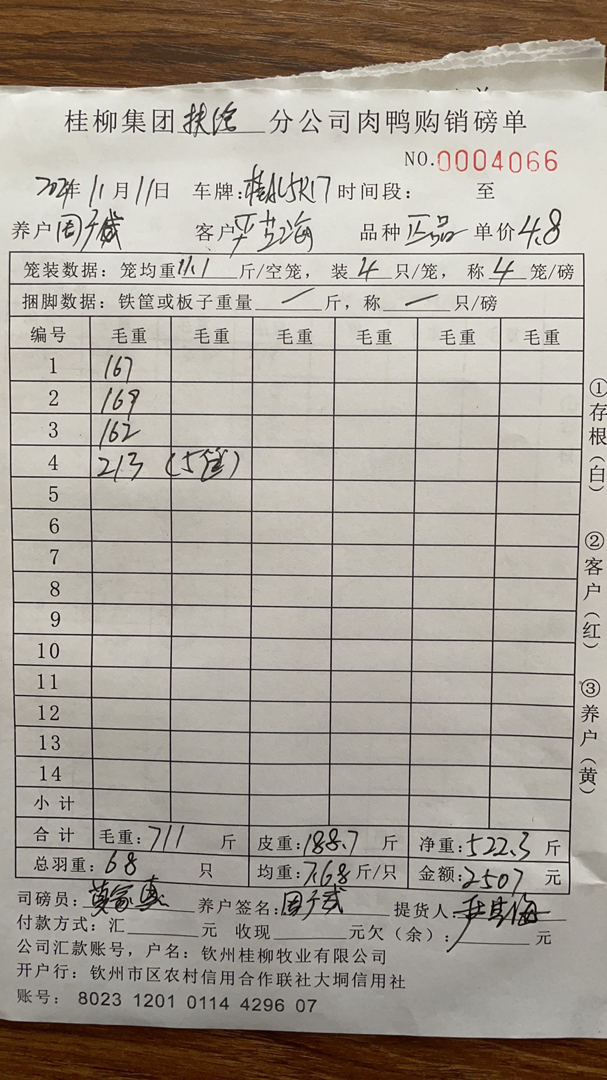 桂柳集团 分公司肉鸭购销磅单
NO.0004066
2021年11月11日 车牌: 时间段: 至
养户 客户 品种 正品 单价 4.8
笼装数据：笼均重 11.1 斤/空笼，装 4 只/笼，称 4 笼/磅
捆脚数据：铁筐或板子重量 — 斤，称 — 只/磅
编号 毛重 毛重 毛重 毛重 毛重 毛重
1 167
2 169
3 162
4 213 (5笼)
5
6
7
8
9
10
11
12
13
14
小计
合计 毛重:711 斤 皮重:188.7 斤 净重:522.3 斤
总羽重:68 只 均重:7.68 斤/只 金额:2507 元
司磅员: 养户签名: 提货人:
付款方式：汇 元 收现 元欠（余）: 元
公司汇款账号，户名：钦州桂柳牧业有限公司
开户行：钦州市区农村信用合作联社大垌信用社
账号： 8023 1201 0114 4296 07
①存根（白）
②客户（红）
③养户（黄）